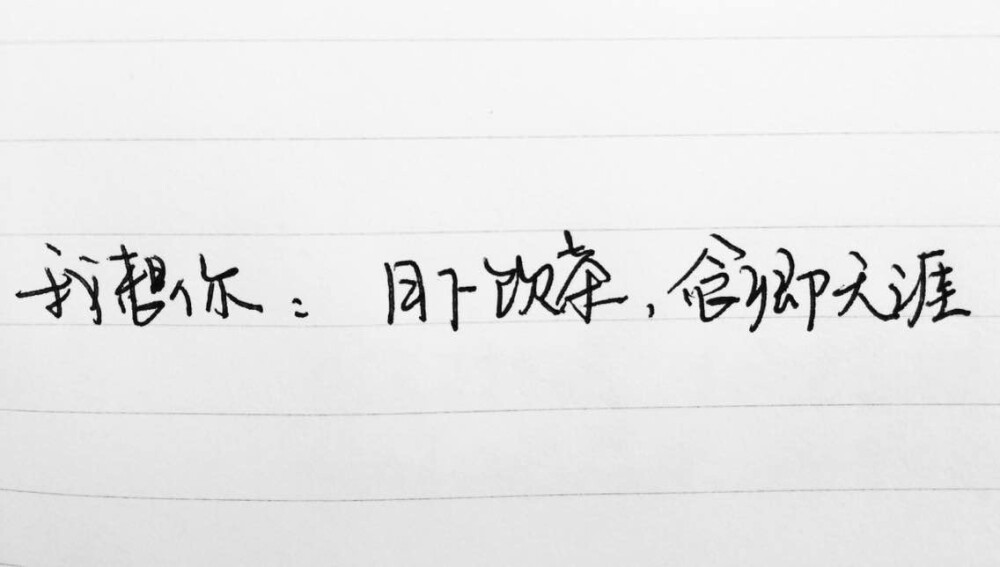 我想你：月下饮茶，念卿天涯